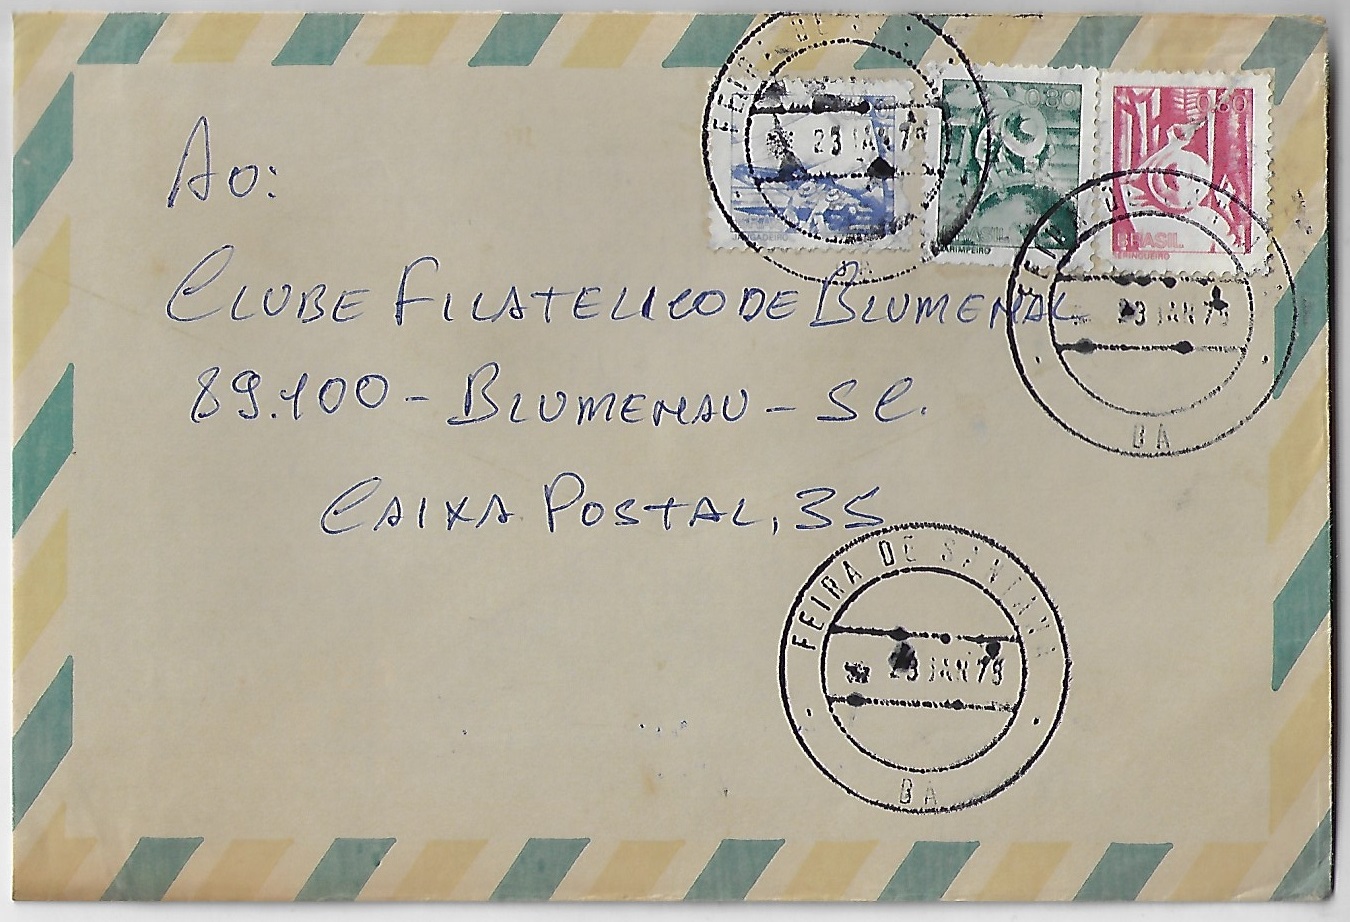 FEIRA DE
23 JAN 79
0,80
GARIMPEIRO
0,80
BRASIL
SERINGUEIRO
23 JAN 79
BA
AO:
CLUBE FILATELICO DE BLUMENAU
89.100 - BLUMENAU - SC.
CAIXA POSTAL, 35
FEIRA DE SANTANA
23 JAN 79
BA